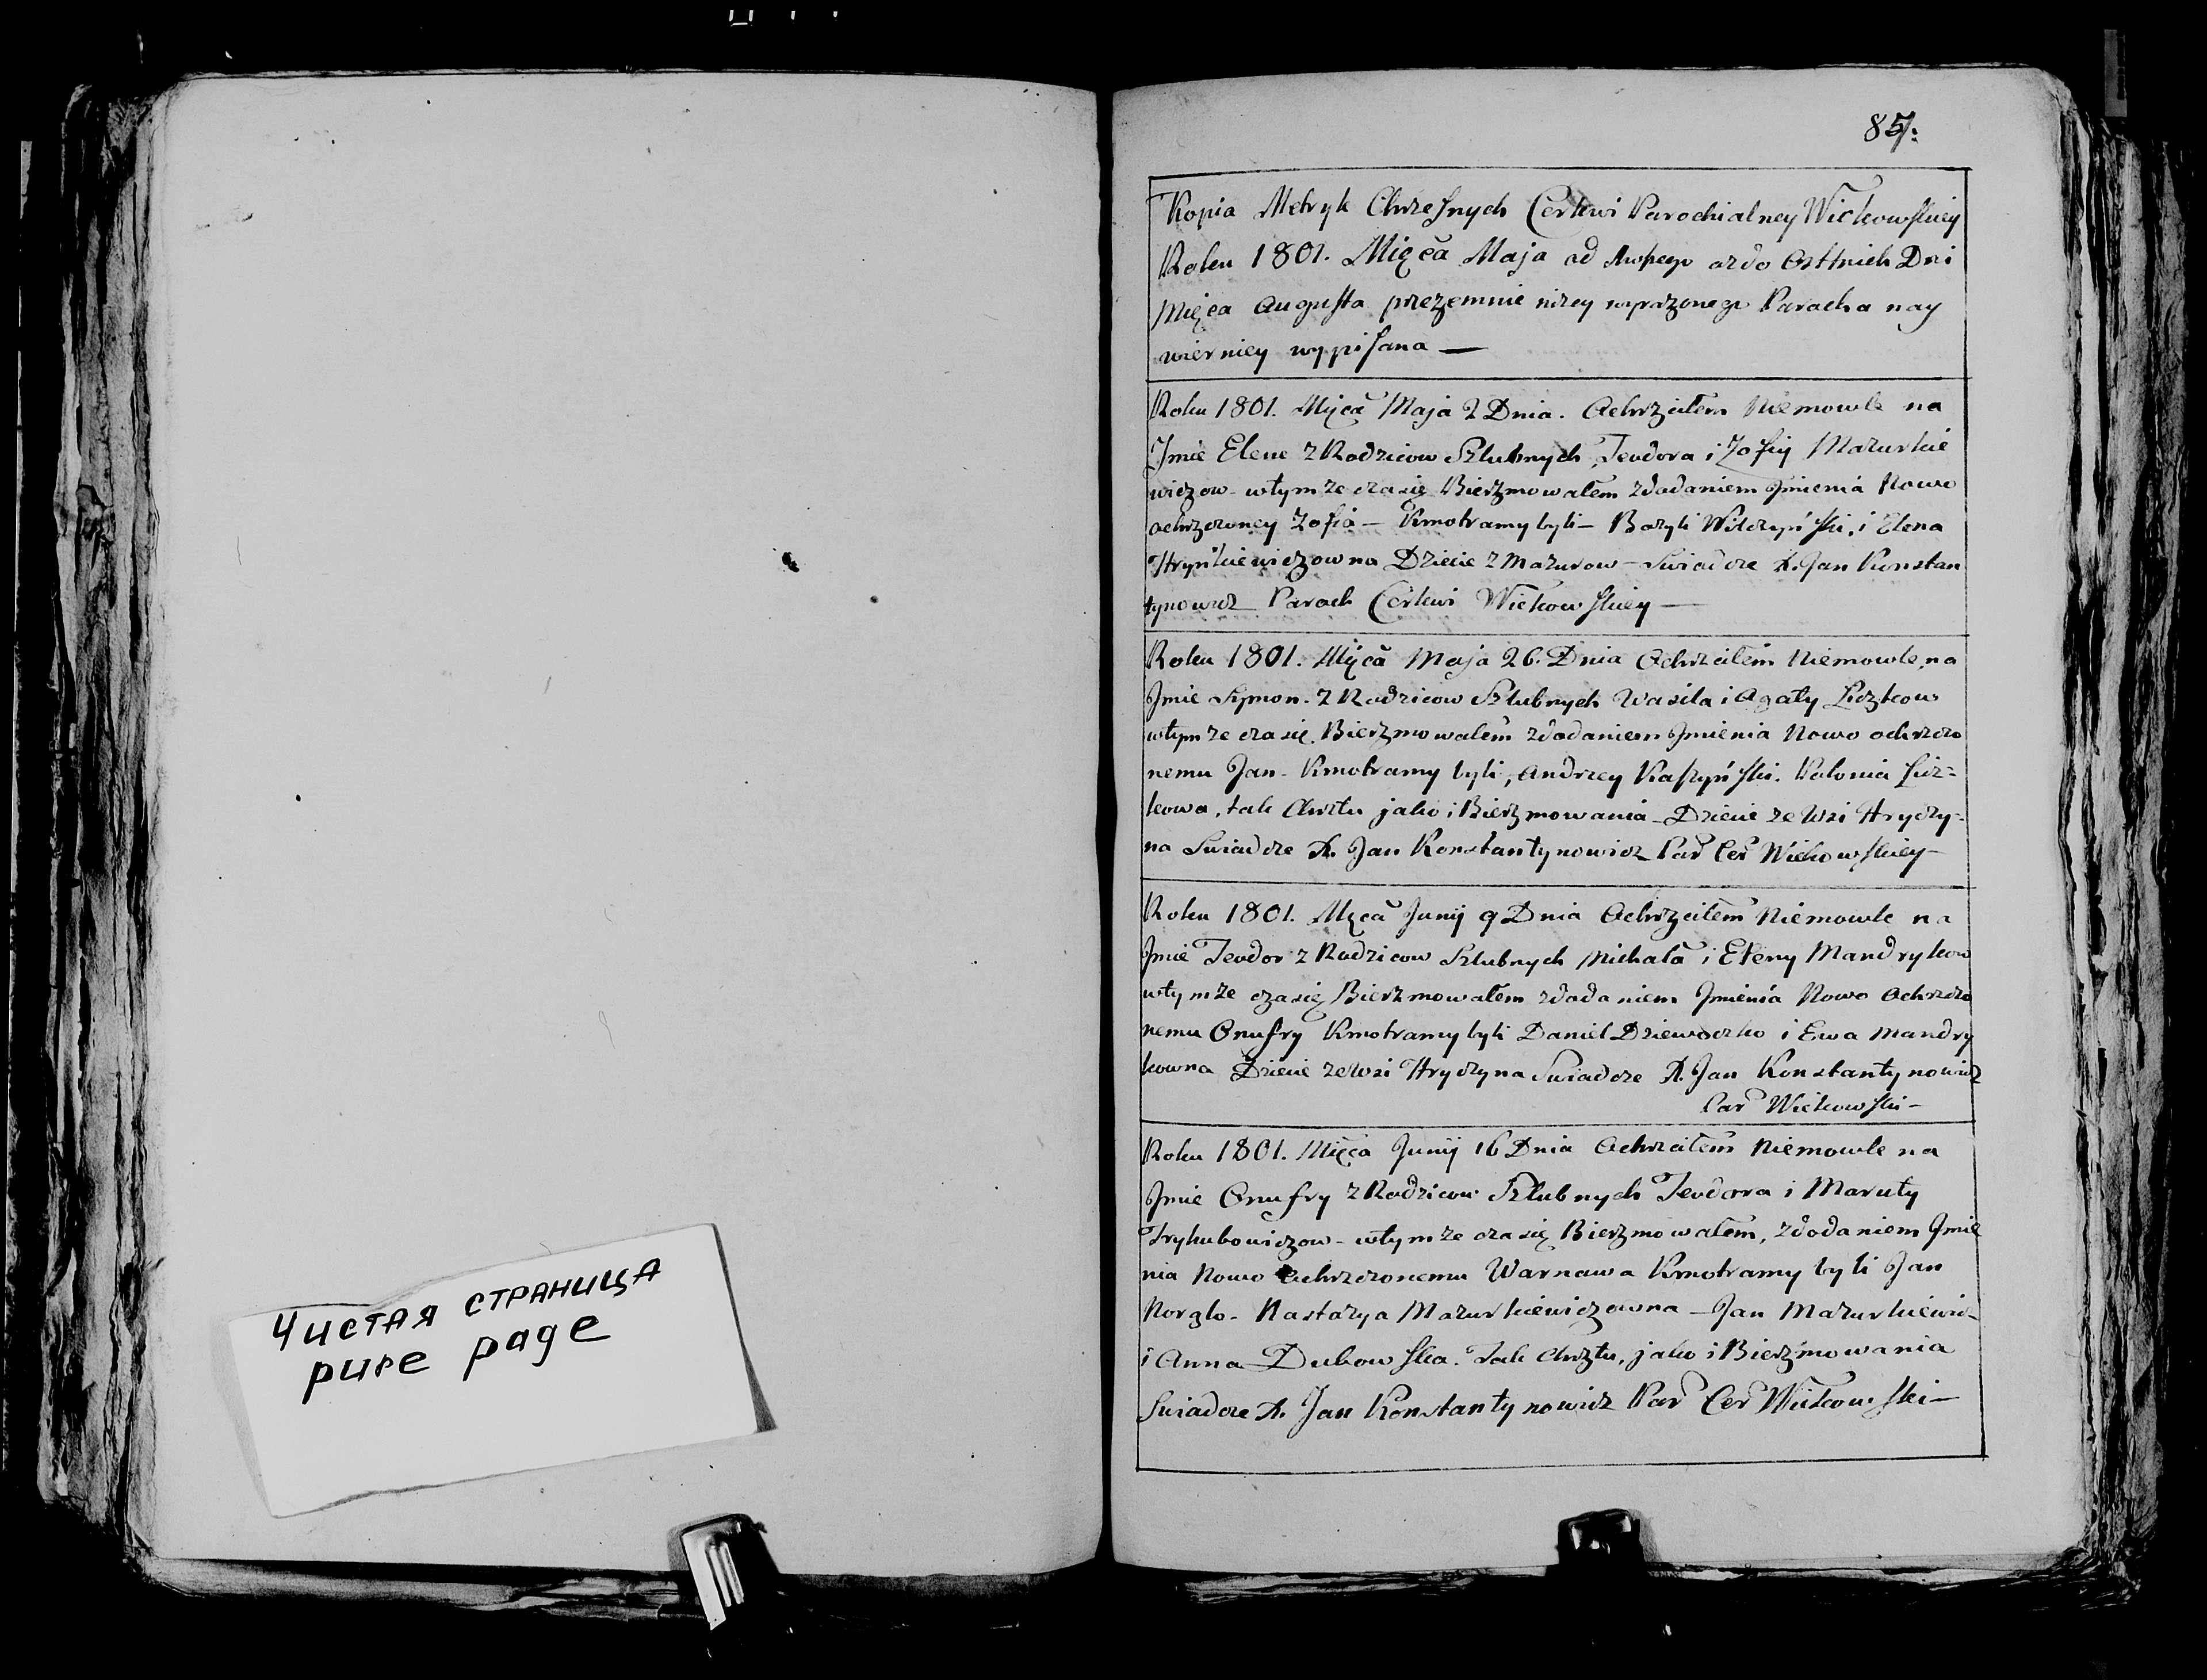 Чистая страница
pure page
85:
Kopia Metryk Chrzesnych Cerkwi Parochialney Wickowskiey
Roku 1801. Mięca Maja od ażdo Osttnich Dni
Mięca Augusta przezemnie niżey wyrażonego Parocha nay
wierniey wypisana —
Roku 1801. Mięca Maja 2 Dnia. Ochrzciłem Niemowle na
Jmie Elene z Rodzicow Szlubnych Teodora i Zofij Mazurkie
wiczow wtymże czasię Bierzmowałem zdodaniem Jmienia Nowo
ochrzczoney Zofia — Kmotramy byli — Bazyli Wilczyński, i Elena
Hryńkiewiczowna Dziecie z Mazurow — Swiadcze X. Jan Konstan
tynowicz Paroch Cerkwi Wickowskiey —
Roku 1801. Mięca Maja 26. Dnia Ochrzciłem Niemowle na
Jmie Symon. z Rodzicow Szlubnych Wasila i Agaty
wtymże czasię Bierzmowałem zdodaniem Jmienia Nowo ochrzczo
nemu Jan. Kmotramy byli, Andrzey Kaszyński. Polonia
kowa, tak Chrztu jako i Bierzmowania — Dziecie ze Wsi Hryczy-
na Swiadcze X. Jan Konstantynowicz Par Cer Wickowskiey —
Roku 1801. Mięca Junij 9 Dnia Ochrzciłem Niemowle na
Jmie Teodor z Rodzicow Szlubnych Michała i Eleny Mandrykow
wtymże czasię Bierzmowałem zdodaniem Jmienia Nowo Ochrzczo
nemu Onufry Kmotramy byli Daniel Dziewoczko i Ewa Mandry
kowna Dziecie ze Wsi Hryczyna Swiadcze X. Jan Konstantynowicz
Par Wickowski —
Roku 1801. Mięca Junij 16 Dnia Ochrzciłem Niemowle na
Jmie Onufry z Rodzicow Szlubnych Teodora i Maruty
Tryhubowiczow — wtymże czasię Bierzmowałem, zdodaniem Jmie
nia Nowo Ochrzczonemu Warnawa Kmotramy byli Jan
Norglo — Nastazya Mazurkiewiczowna — Jan Mazurkiewicz
i Anna Dubowska. Tak Chrztu, jako i Bierzmowania
Swiadcze X. Jan Konstantynowicz Par Cer Wickowski —